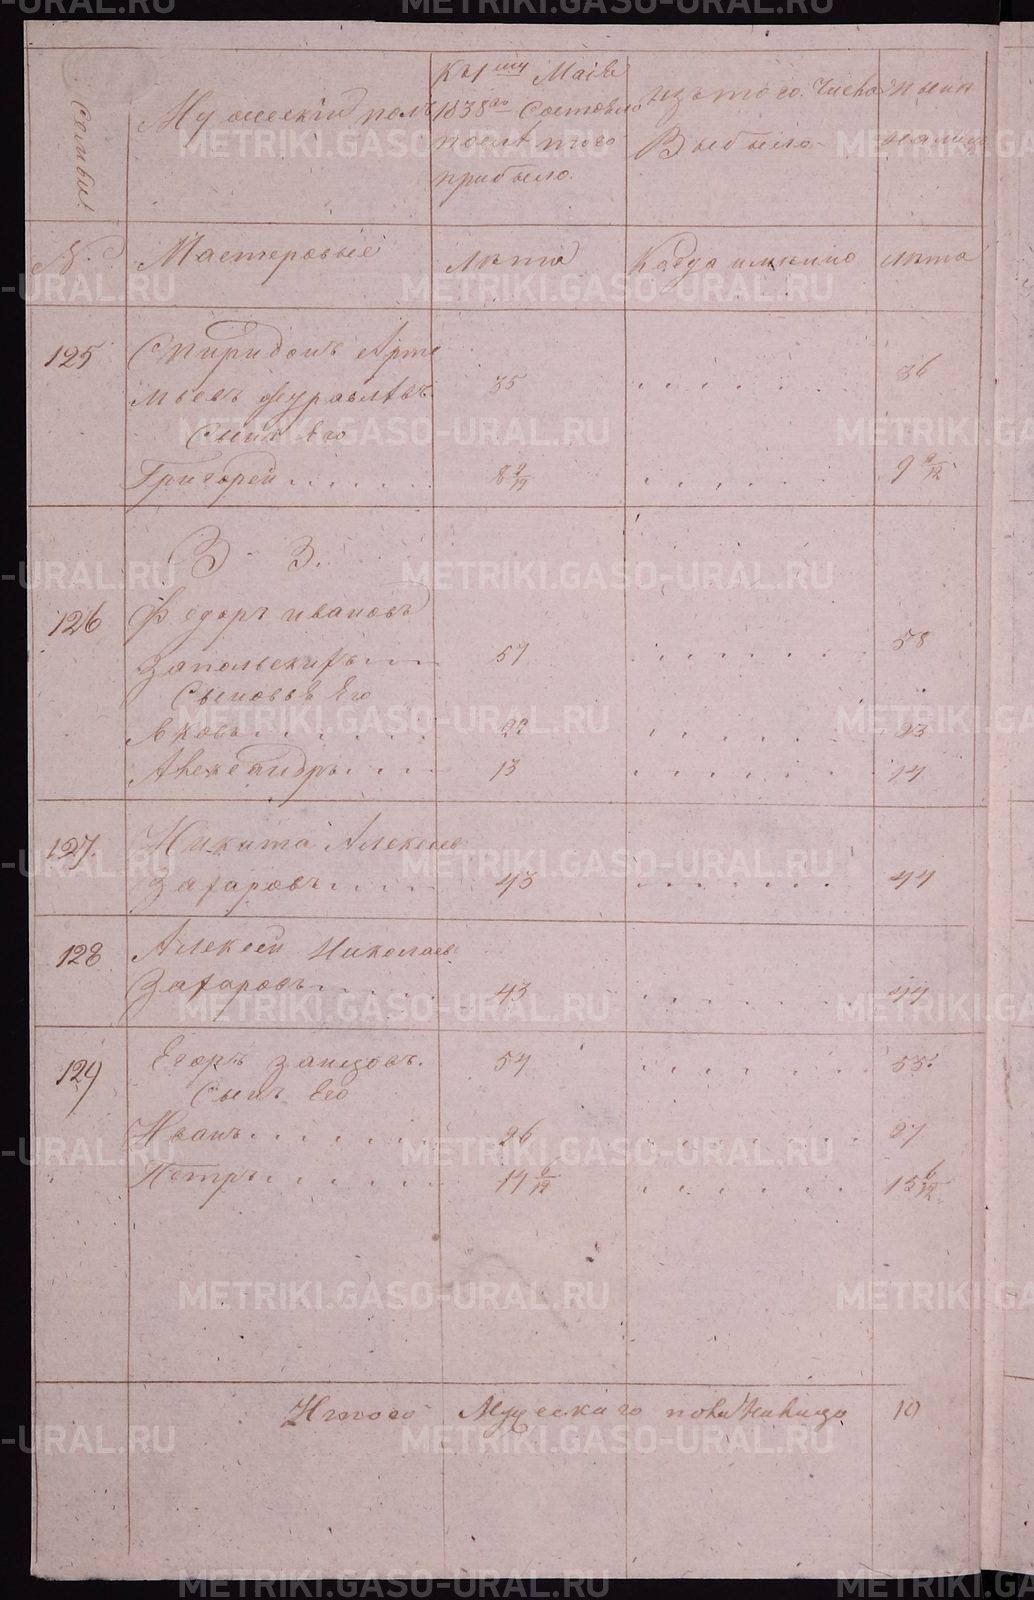 Семьи
Мужескій полъ
Къ 1му Маія
1838го Состояло
после того
прибыло.
изъ того числа
Выбыло
Ныне
налицо
№
Мастеровые
лѣта
Когда имянно
лѣта
125 Спиридонъ Арте
мьевъ Журавлевъ 35 . . . . . . 36
Сынъ Его
Григорей . . . . . . 8 9/12 . . . . . . 9 9/12
З - З.
126 Федоръ Ивановъ
Запольскихъ 57 . . . . . . 58
Сыновья Его
Яковъ . . . . . . 22 . . . . . . 23
Александръ . . . . 13 . . . . . . 14
127. Никита Алексеев
Захаровъ . . . . 43 . . . . . . 44
128 Алексей Николаев
Захаровъ . . . . 43 . . . . . . 44
129 Егоръ Зайцовъ. 54 . . . . . . 55
Сынъ Его
Иванъ . . . . . . 26 . . . . . . 27
Петръ . . . . . . 14 6/12 . . . . . . 15 6/12
Итого Мужескаго пола налицо 10
METRIKI.GASO-URAL.RU